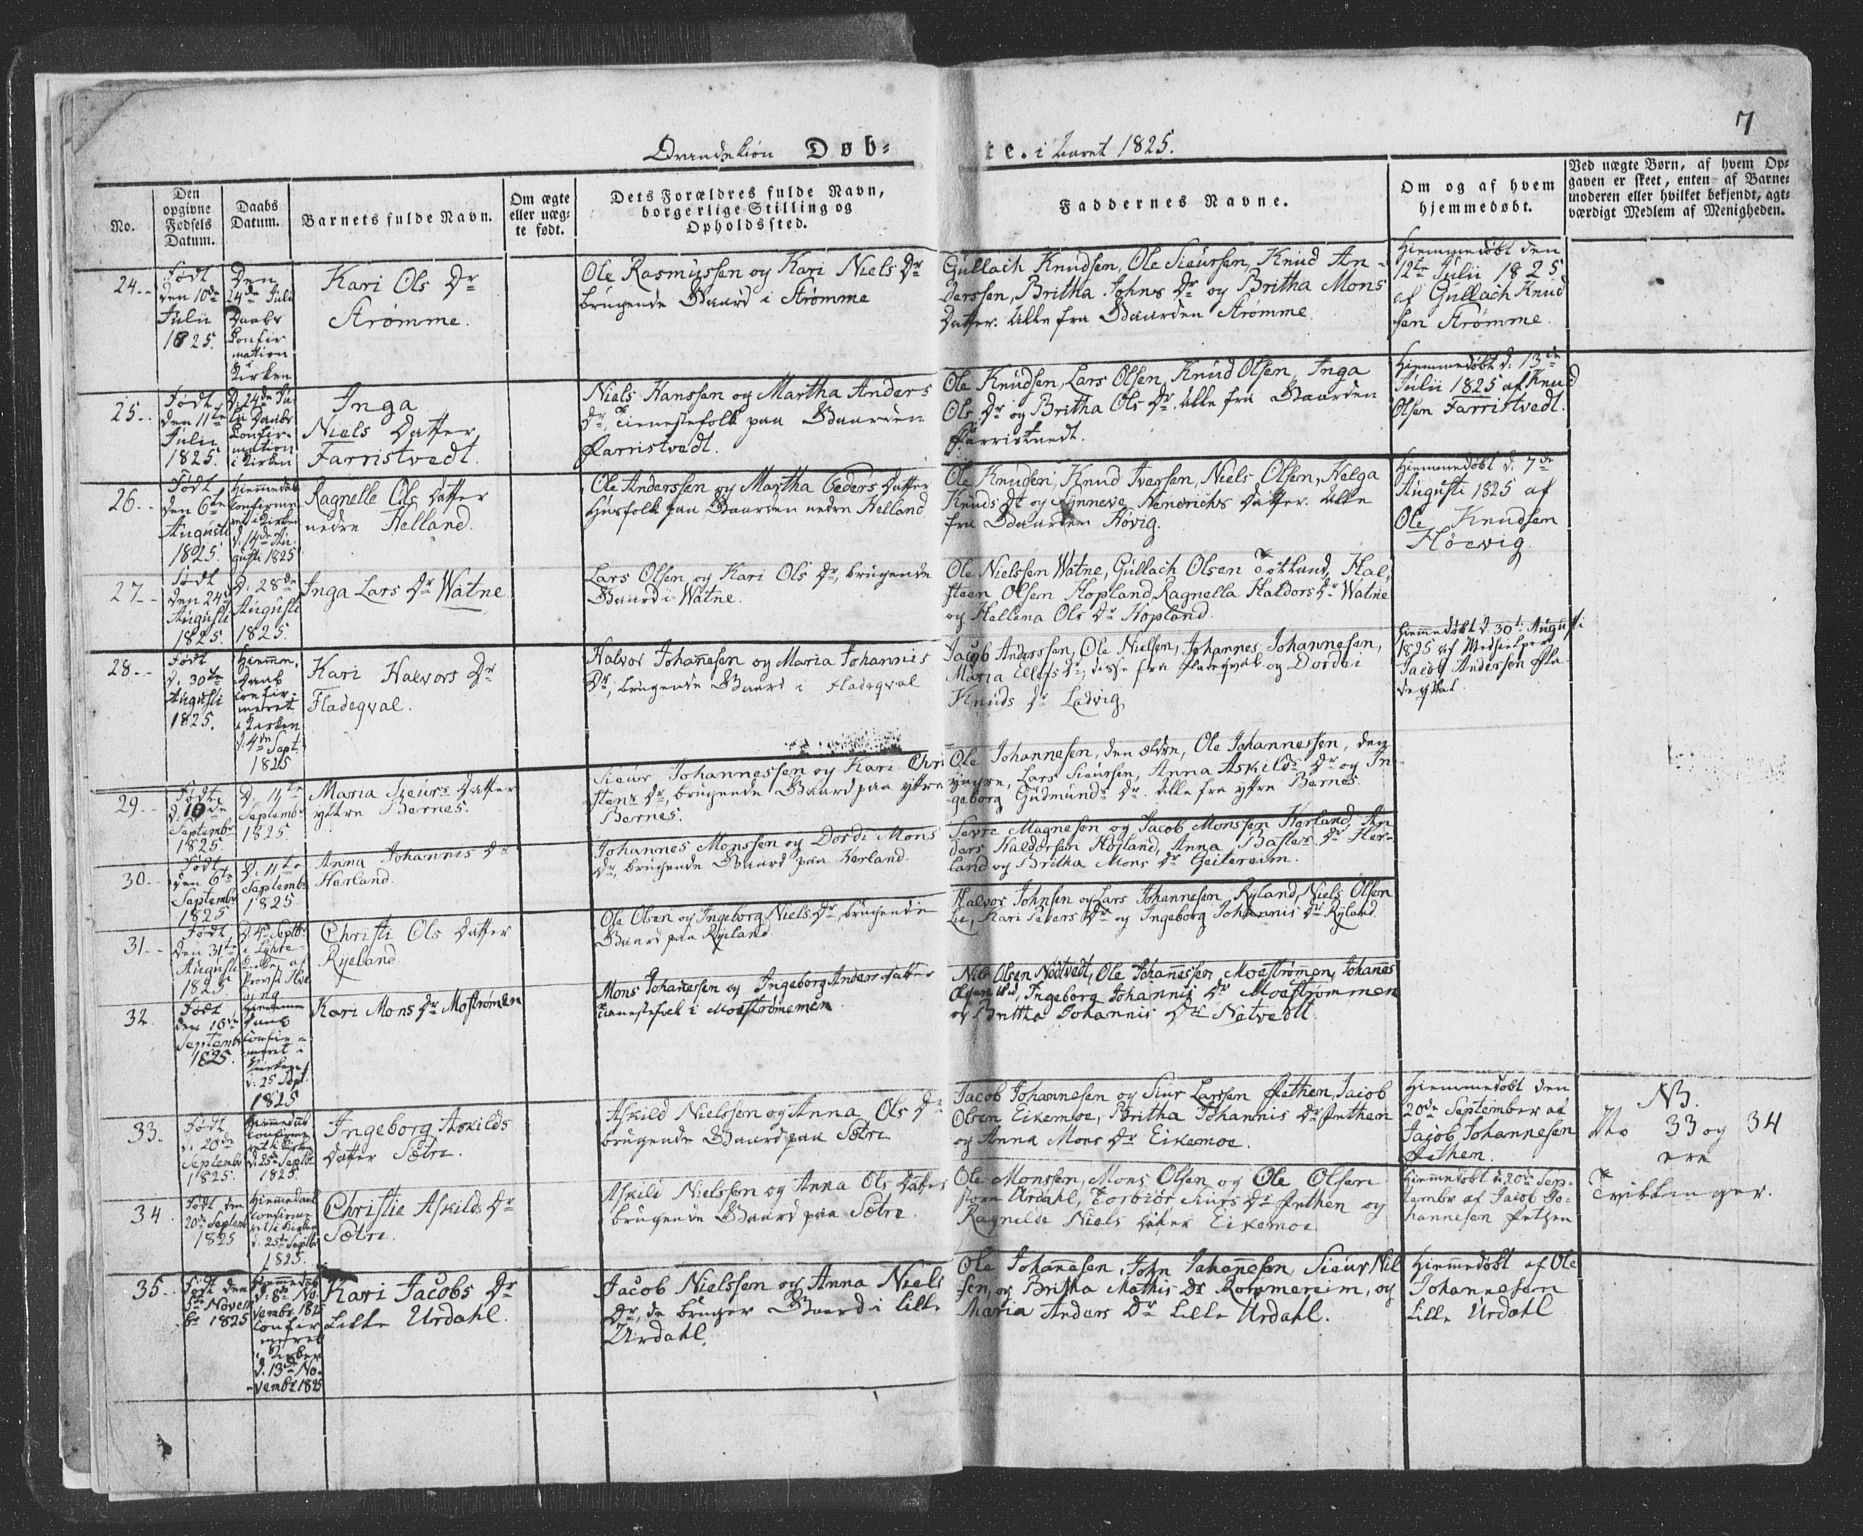 7
Qvindekiøn Døb-
te. i Aaret 1825.
No.
Den opgivne Fødsels Datum.
Daabs Datum.
Barnets fulde Navn.
Om ægte eller uæg-
te født.
Dets Forældres fulde Navn,
borgerlige Stilling og
Opholdssted.
Faddernes Navne.
Om og af hvem
hjemmedøbt.
Ved uægte Børn, af hvem Op-
gaven er skeet, enten af Barne-
moderen eller hvilket bekjendt, agt-
værdigt Medlem af Menigheden.
24.
Født
den 10de
Julii
1825.
Den
24de Juli
Daabs
Confir
mation
Kirken
Kari Ols Dr
Strømme.
Ole Rasmussen og Kari Niels Dr
brugende Gaard i Strømme
Gullach Knudsen, Ole Sieursen, Knud An-
derssen, Britha Johns Dr og Britha Mons
Datter. Alle fra Gaarden Strømme.
Hiemmedøbt den
12te Julii 1825
af Gullach Knud
sen Strømme.
25.
Født
den 11te
Julii
1825.
D. 24de Ju-
li Daabs
Confir-
mation
i Kirken
Inga
Niels Datter
Farristvedt.
Niels Hanssen og Martha Anders
Dr, Tienestefolk paa Gaarden
Farristvedt.
Ole Knudsen, Lars Olsen, Knud Olsen, Inga
Ols Dr og Britha Ols Dr. Alle fra Gaarden
Farristvedt.
Hiemmedøbt d. 13de
Julii 1825 af Knud
Olsen Farristvedt.
26.
Født
den 6te
Augusti
1825.
Hiemmedøb
Confirme
ret i Kirken
d. 14de Au-
gusti 1825
Ragnelle Ols Datter
nedre Helland.
Ole Anderssen og Martha Peders Datter
Huusfolk paa Gaarden nedre Helland
Ole Knudsen, Knud Iversen, Niels Olsen, Helga
Knuds Dr og Synneve Henderichs Datter. Alle
fra Gaarden Høvig.
Hiemmedøbt d. 7de
Augusti 1825 af
Ole Knudsen
Høevig
27.
Født
den 24de
Augusti
1825.
D. 28de
Augusti
1825.
Inga Lars Dr Watne.
Lars Olsen og Kari Ols Dr, brugende
Gaard i Watne.
Ole Nielssen Watne, Gullach Olsen Totland, Hal-
steen Olsen Hopland, Ragnella Haldors Dr Watne
og Hellena Ols Dr Hopland.
28.
Født
d. 30te
Augusti
1825.
Hiemme
Daab
Confir-
meret
i Kirken
d. 4de Sept.
1825
Kari Halvors Dr
Fladeqval.
Halvor Johannesen og Maria Johannis
Dr, brugende Gaard i Fladeqval
Jacob Anderssen, Ole Nielsen, Johannes Johannesen,
Maria Ellefs Dr, disse fra Fladeqval og Dordei
Knuds Dr Ladvig
Hiemmedøbt d. 30te Augusti
1825 af Medhielper
Jacob Andersen Fla-
deqval.
29.
Født
d. 10de
Septembr
1825.
D. 11te
Septembr
1825.
Maria Sieurs Datter
yttre Bernes.
Sieur Johannessen og Kari Chri
stens Dr, brugende Gaard paa yttre
Bernes.
Ole Johannesen, den ældre, Ole Johannessen, den
yngre, Lars Sieurssen, Anna Askilds Dr og In-
geborg Gudmunds Dr. Alle fra yttre Bernes.
30.
Født
den 6te
Septembr
1825
D. 11te
Septembr
1825.
Anna Johannis Dr
Herland.
Johannes Monssen og Dordi Mons
Dr, brugende Gaard paa Herland.
Sevre Magnesen og Jacob Monssen Herland, An
ders Haldorsen Høyland, Anna Basters Dr Her-
land og Britha Mons Dr Geitereim.
31.
Født
den 31te
Augusti
1825
Christi Ols Datter
Ryeland.
Ole Olsen og Ingeborg Niels Dr, brugende
Gaard paa Ryeland
Halvor Johnsen og Lars Johannesen Ryland, Niels Olsen
Lie, Kari Severs Dr og Ingeborg Johannis Dr Ryland.
32.
Født
den 16de
Septembr
1825.
Hiemme
Daab
Confir-
meret i
Kirken
d. 25 Sept.
1825
Kari Mons Dr Mostrømen
Mons Johannessen og Ingeborg Anders datter
Tienestefolk i Moestrømemen
Nils Olsen Nøtvedt, Ole Johannessen Moestrømen, Johannes
Olsen ibid, Ingeborg Johannis Dr Moestrømmen
og Britha Johannis Dr Nøtvedtt.
33.
Født
d. 20de
Septembr
1825.
Hiemmedøb
Confirme
ret i Kirken
d. 25de Septbr
1825.
Ingeborg Askilds
Datter Sætre.
Askild Nielssen og Anna Ols Dr
brugende Gaard paa Sætre
Jacob Johannesen og Siur Larssen Øethem, Jacob
Olsen Eikemoe, Britha Johannis Dr Øethem
og Anna Mons Dr Eikemoe.
Hiemmedøbt den
20de September af
Jacob Johannesen
Øethem.
NB.
No 33 og 34
ere
Tvillinger.
34.
Født den
20de Septembr
1825
Hiemmedaab
Confirme
ret i Kirken
d. 25te Septbr
1825.
Christie Askilds Dr
Sætre.
Askild Nielssen og Anna Ols Datter
brugende Gaard paa Sætre.
Ole Monssen, Mons Olsen og Ole Olsen
store Urdahl, Torbiør Siurs Dr Øethen og
Ragnilde Niels Datter Eikemoe
Hiemmedøbt d. 20de Sep-
tembr af Jacob Jo-
hannesen Øethen
35.
Født den
5te Novem
br 1825
Hiemmedøb
d. 8de No
vembr 1825
Confir
meret
i Kirken
d. 13de No-
vembr 1825
Kari Jacobs Dr
Lille Urdahl.
Jacob Nielssen og Anna Niels
Dr, de bruger Gaard i Lille
Urdahl.
Ole Johannesen, John Johannesen, Sieur Nil
sen, og Britha Mathis Dr Rommereim, og
Maria Anders Dr Lille Urdahl.
Hiemmedøbt af Ole
Johannesen
Lille Urdahl